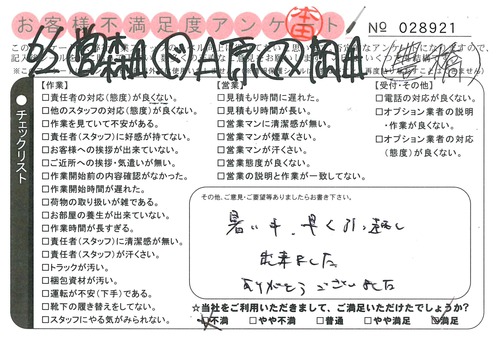 お客様不満足度アンケート
本
No 028921
森 三原 岡 (豊橋)
【作業】
□責任者の対応(態度)が良くない。
□他のスタッフの対応(態度)が良くない。
□作業を見ていて不安がある。
□責任者(スタッフ)に好感が持てない。
□お客様への挨拶が出来ていない。
□ご近所への挨拶・気遣いが無い。
□作業開始前の内容確認がなかった。
□作業開始時間が遅れた。
□荷物の取り扱いが雑である。
□お部屋の養生が出来ていない。
□作業時間が長すぎる。
□責任者(スタッフ)に清潔感が無い。
□責任者(スタッフ)が汗くさい。
□トラックが汚い。
□梱包資材が汚い。
□運転が不安(下手)である。
□靴下の履き替えをしてない。
□スタッフにやる気がみられない。
【営業】
□見積もり時間に遅れた。
□見積もり時間が長い。
□営業マンに清潔感が無い。
□営業マンが煙草くさい。
□営業マンが汗くさい。
□営業態度が良くない。
□営業の説明と作業が一致してない。
【受付・その他】
□電話の対応が良くない。
□オプション業者の説明
・作業が良くない。
□オプション業者の対応
(態度)が良くない。
チェックリスト
その他、ご意見・ご要望等ありましたらお書き下さい。
暑い中、早く引っ越し
出来ました
ありがとうございました
☆当社をご利用いただきまして、ご満足いただけたでしょうか?
□不満 □やや不満 □普通 □やや満足 □満足